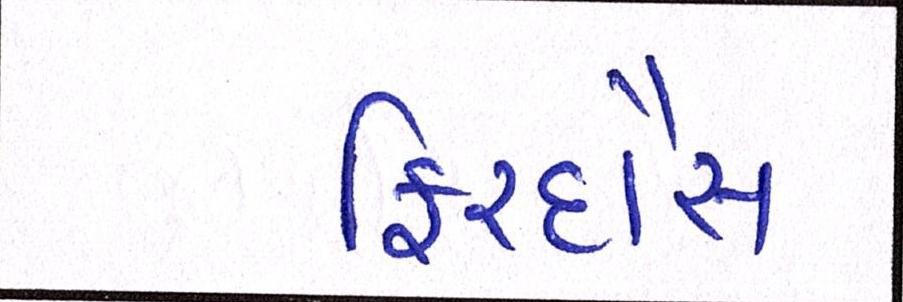 ફિરદૌસ